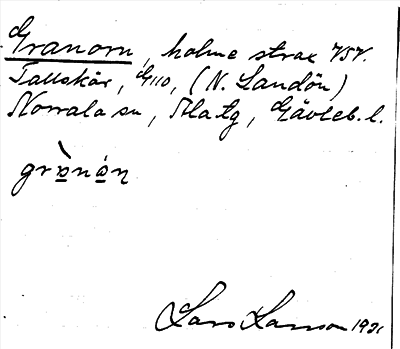 Granorn, holme strax VSV.
Tallskär, G110, (N. Sandön)
Norrala sn, Ala tg, Gävleb. l.
grànán
Lars Larsson 1921